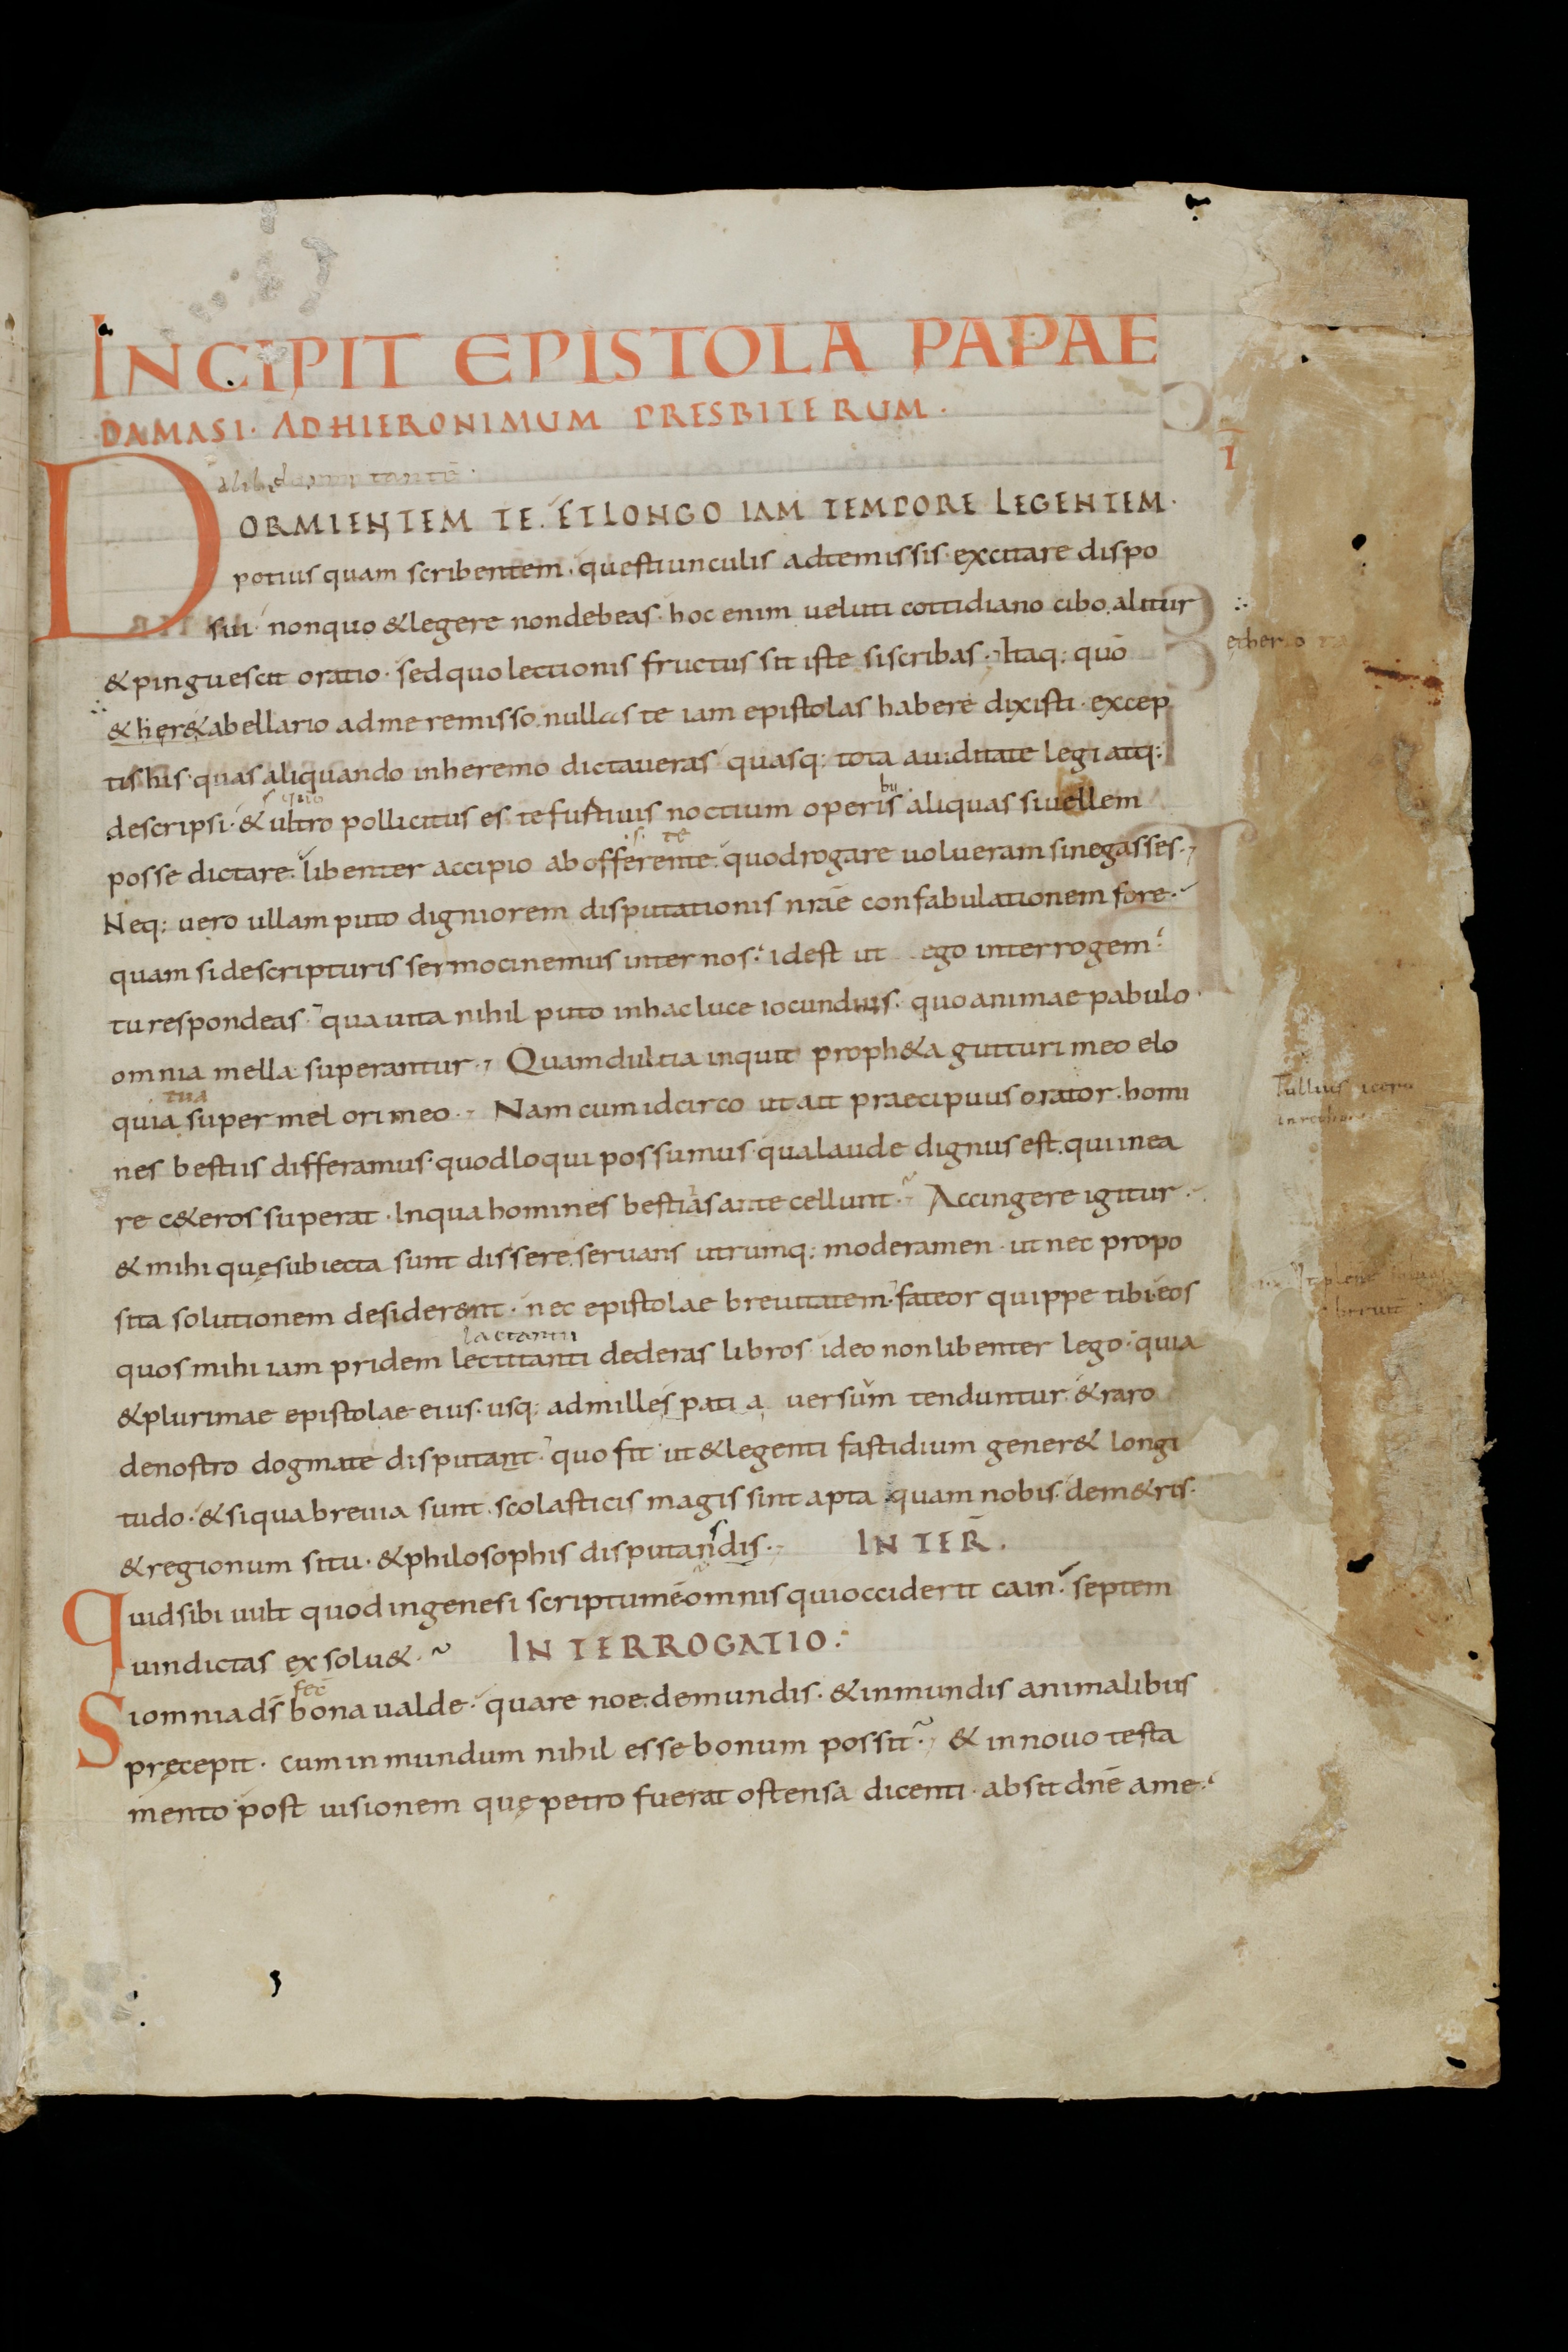 INCIPIT EPISTOLA PAPAE
DAMASI · AD HIERONIMUM PRESBITERUM ·
I
DORMIENTEM TE · ET LONGO IAM TEMPORE LEGENTEM ·
potius quam scribentem · questiunculis ad te missis · excitare dispo
sui · non quo & legere non debeas · hoc enim ueluti cottidiano cibo alitur
& pinguescit oratio · sed quo lectionis fructus sit iste si scribas · Itaq: quō
& her& abellario ad me remisso nullas te iam epistolas habere dixisti · excep
tis his · quas aliquando in heremo dictaueras quasq: tota auiditate legi atq:
descripsi · & ultro pollicitus es te furtiuis noctium operis aliquas si uellem
bu
posse dictare · libenter accipio ab offerente · quod rogare uolueram si negasses ·
te
Neq: uero ullam puto digniorem disputationis nrāe confabulationem fore ·
quam si de scripturis sermocinemus inter nos · id est ut ego interrogem
tu respondeas · qua uita nihil puto in hac luce iocundius · quo animae pabulo ·
omnia mella superantur · Quam dulcia inquit proph&a gutturi meo elo
quia super mel ori meo · Nam cum idcirco ut ait praecipuus orator · homi
tua
Tullius
nes bestiis differamus · quod loqui possumus · qua laude dignus est · qui in ea
re c&eros superat · In qua homines bestias antecellunt · Accingere igitur ·
& mihi quę subiecta sunt dissere seruans utrumq: moderamen · ut nec propo
sita solutionem desiderent · nec epistolae breuitatem · fateor quippe tibi eos
quos mihi iam pridem lectitanti dederas libros ideo non libenter lego · quia
lactantii
& plurimae epistolae eius · usq: ad mille spatia uersum tenduntur & raro
de nostro dogmate disputant · quo fit ut & legenti fastidium gener& longi
tudo · & si qua breuia sunt · scolasticis magis sint apta quam nobis · de m&ris ·
& regionum situ · & philosophis disputandis · INTER̄ ·
Quid sibi uult quod in genesi scriptum ē omnis qui occiderit cain septem
uindictas exsolu& · INTERROGATIO ·
Si omnia dš bona ualde · quare noe de mundis · & inmundis animalibus
fec̄
pręcepit · cum inmundum nihil esse bonum possit · & in nouo testa
mento post uisionem quę petro fuerat ostensa dicenti · absit dnē a me ·